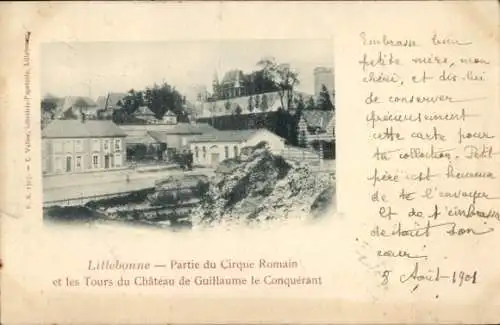 Lillebonne — Partie du Cirque Romain
et les Tours du Château de Guillaume le Conquérant
Embrasse bien
petite mère, mon
chéri, et dis-lui
de conserver
précieusement
cette carte pour
ta collection. Petit
père est heureux
de te l'envoyer
et de t'embrasser
de tout son
cœur
5 Août 1901